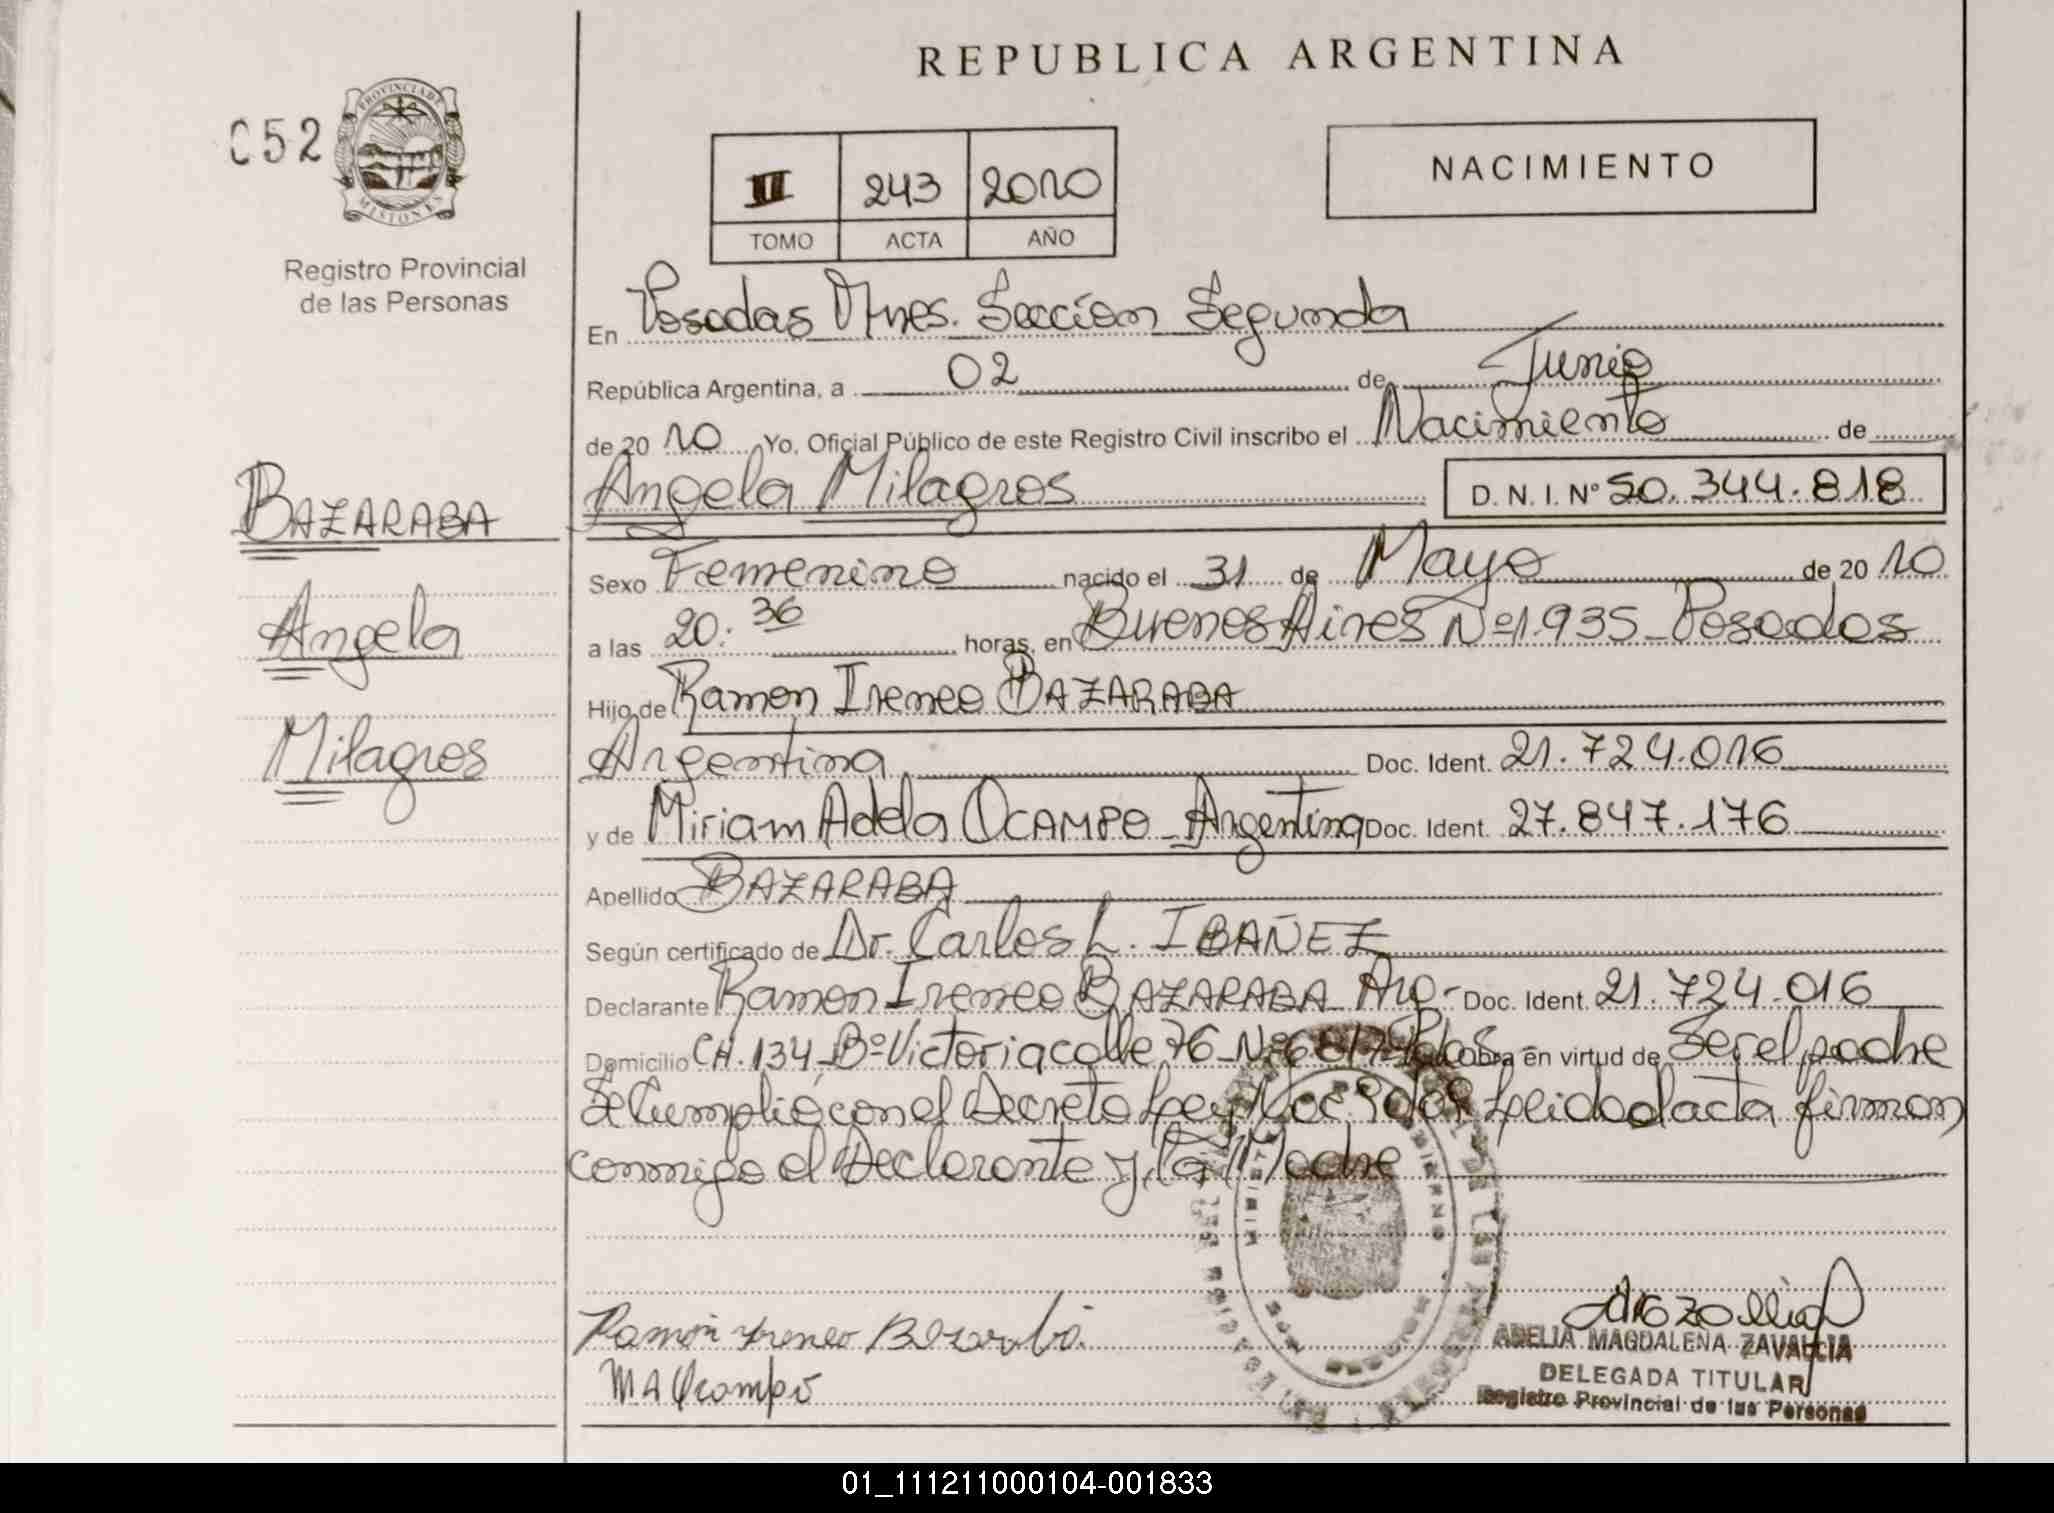 REPUBLICA ARGENTINA
C52
PROVINCIA DE
MISIONES
Registro Provincial
de las Personas
II 243 2010
TOMO ACTA AÑO
NACIMIENTO
En Posadas Mnes. Sección Segunda
República Argentina, a 02 de Junio
de 2010 Yo, Oficial Público de este Registro Civil inscribo el Nacimiento de
Angela Milagros D. N. I. Nº 50.344.818
BAZARABA
Angela
Milagros
Sexo Femenino nacido el 31 de Mayo de 2010
a las 20:36 horas, en Buenos Aires Nº 1.935 - Posadas
Hijo de Ramon Ireneo BAZARABA
Argentina Doc. Ident. 21.724.016
y de Miriam Adela OCAMPO - Argentina Doc. Ident. 27.847.176
Apellido BAZARABA
Según certificado de Dr. Carlos L. IBAÑEZ
Declarante Ramon Ireneo BAZARABA Arg- Doc. Ident. 21.724.016
Domicilio CH. 134, Bº Victoria calle 76 - Nº Obra en virtud de Ser el padre
Se Cumplió con el Decreto Ley Leida el acta firman
conmigo el Declarante y La Madre
Ramon Ireneo Bazaraba.
MA Ocampo
ADELIA MAGDALENA
DELEGADA TITULAR
Registro Provincial de las Personas
01_111211000104-001833